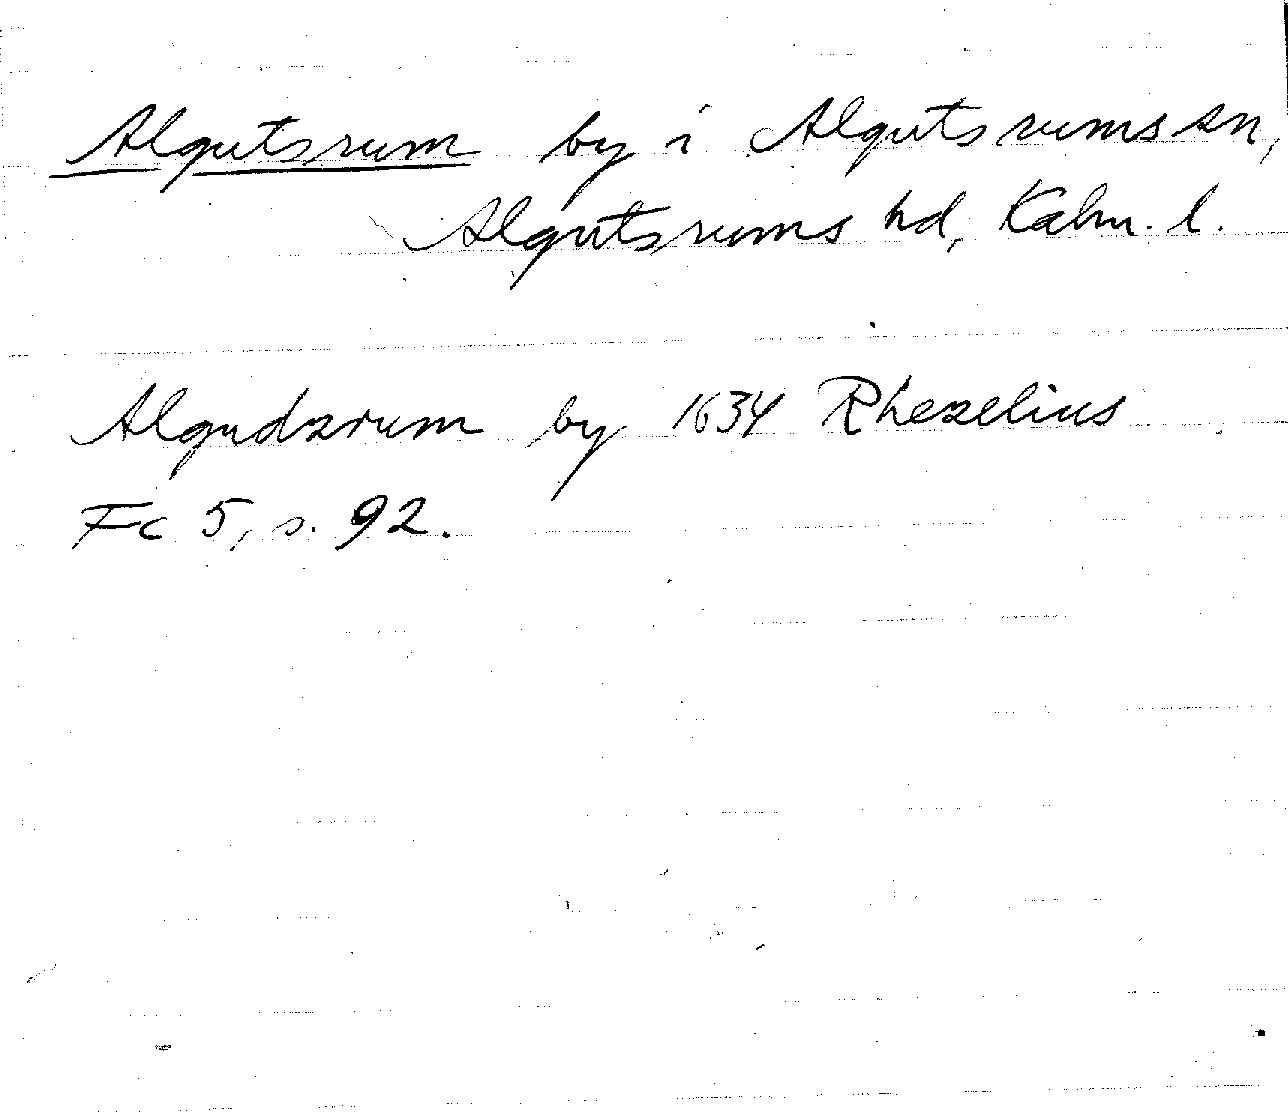 Algutsrum by i Algutsrums sn,
Algutsrums hd, Kalm. l.
Algudzrum by 1634 Rhezelius
Fc 5, s. 92.